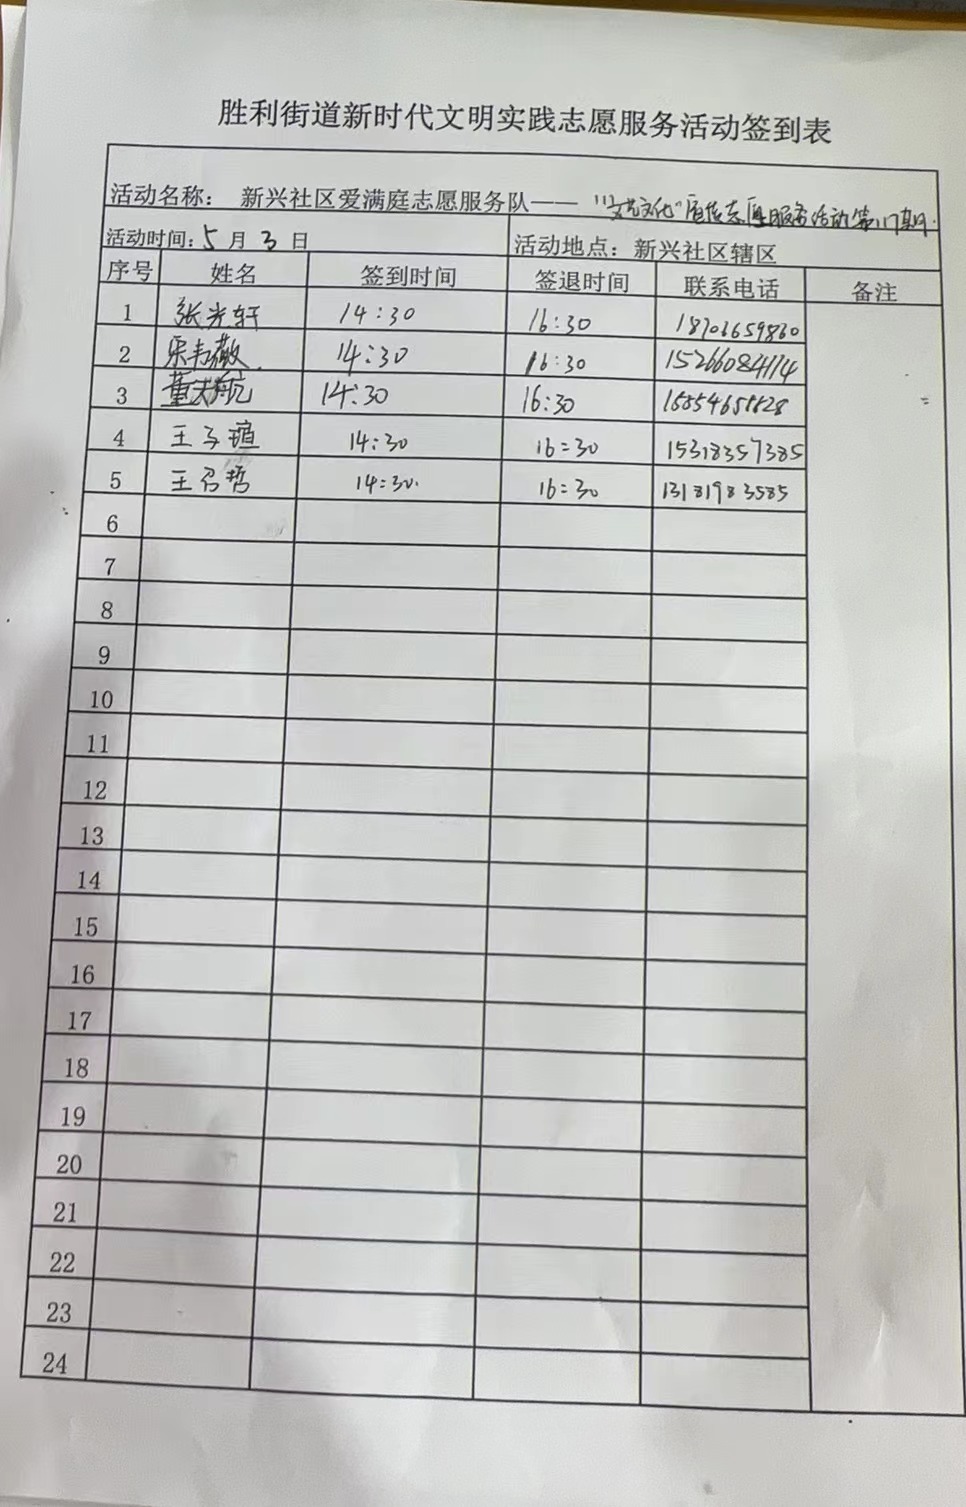 胜利街道新时代文明实践志愿服务活动签到表
活动名称： 新兴社区爱满庭志愿服务队—— 文化"宣传志愿服务活动第117期
活动时间：5 月 3 日 活动地点：新兴社区辖区
序号 姓名 签到时间 签退时间 联系电话 备注
1 张光轩 14:30 16:30 18701659860
2 14:30 16:30 15266084114
3 14:30 16:30
4 王子瑄 14:30 16:30 15318357385
5 王召哲 14:30 16:30 13181983585
6
7
8
9
10
11
12
13
14
15
16
17
18
19
20
21
22
23
24